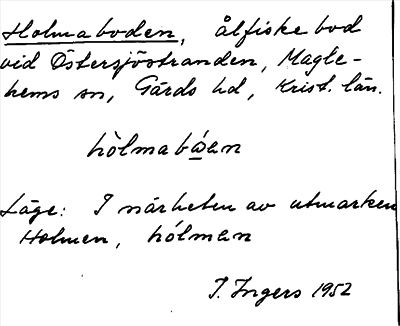 Holmaboden, ålfiskebod
vid Östersjöstranden, Magle-
hems sn, Gärds hd, Krist. län.
hòlmabóen
Läge: I närheten av utmarken
Holmen, hólman
I. Ingers 1952